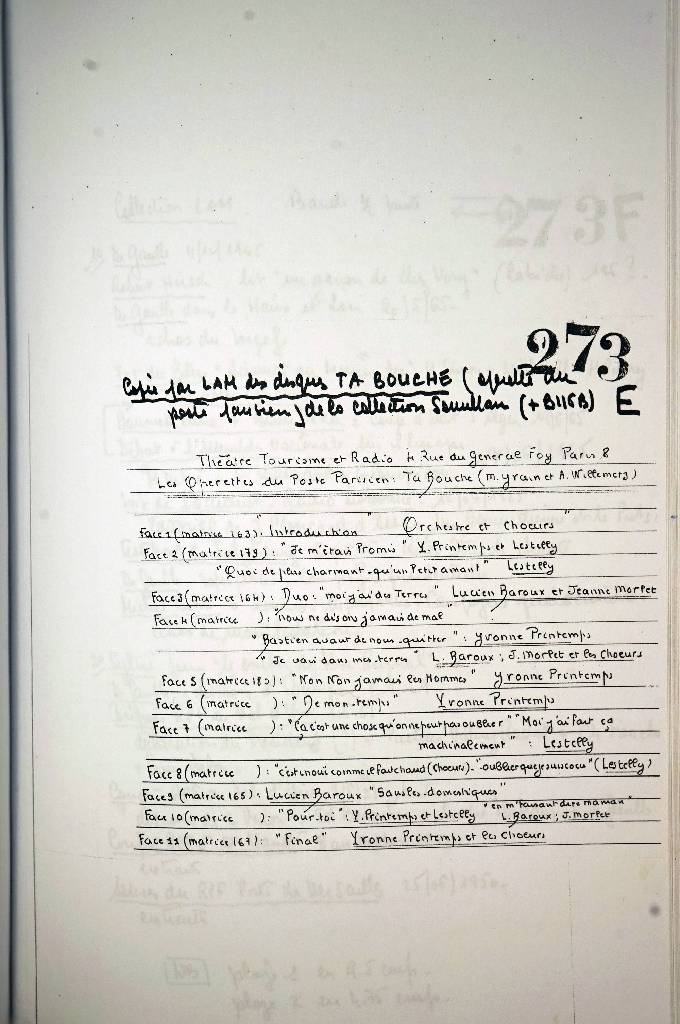 273
Copie par LAM des disques TA BOUCHE (opérette du
poste parisien) de la collection (+ B115B) E
Théâtre Tourisme et Radio 4 Rue du General Foy Paris 8
Les Operettes du Poste Parisien: Ta Bouche (M. Yvain et A. Willemetz)
Face 1 (matrice 163): "Introduction" "Orchestre et Choeurs"
Face 2 (matrice 179): "Je m'étais Promis" Y. Printemps et Lestelly
"Quoi de plus charmant qu'un Petit amant" Lestelly
Face 3 (matrice 164): Duo: "moi j'ai des Terres" Lucien Baroux et Jeanne Morlet
Face 4 (matrice ): "nous ne disons jamais de mal"
"Bastien avant de nous quitter": Yvonne Printemps
"Je vais dans mes terres" L. Baroux; J. Morlet et les Choeurs
Face 5 (matrice 180): "Non Non jamais les Hommes" Yvonne Printemps
Face 6 (matrice ): "De mon temps" Yvonne Printemps
Face 7 (matrice ): "ça c'est une chose qu'on ne peut pas oublier" "Moi j'ai fait ça
machinalement": Lestelly
Face 8 (matrice ): "c'est inoui comme il fait chaud (Choeurs)-" "oublier que je suis cocu" (Lestelly)
Face 9 (matrice 165): Lucien Baroux "Sans les domestiques"
Face 10 (matrice ): "Pour toi": Y. Printemps et Lestelly "en m'faisant dire maman" L. Baroux; J. Morlet
Face 11 (matrice 167): "Final" Yvonne Printemps et les Choeurs